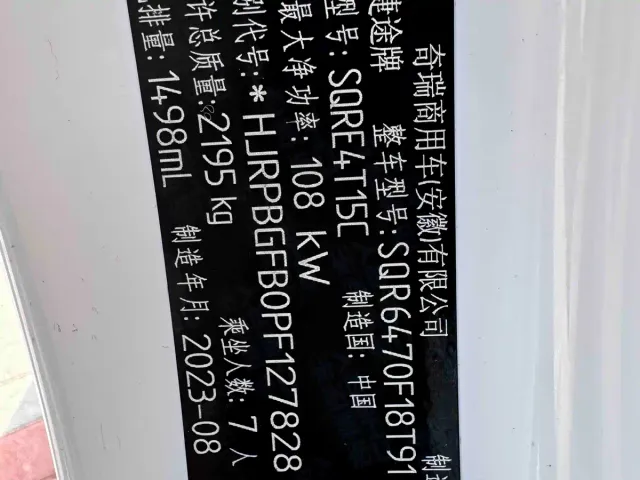 奇瑞商用车(安徽)有限公司 制
途牌 整车型号:SQR6470F18T91
型号:SQRE4T15C 制造国:中国
最大净功率:108 kW
代号:*HJRPBGFB0PF127828
许总质量:2195 kg 乘坐人数:7人
排量:1498mL 制造年月:2023-08